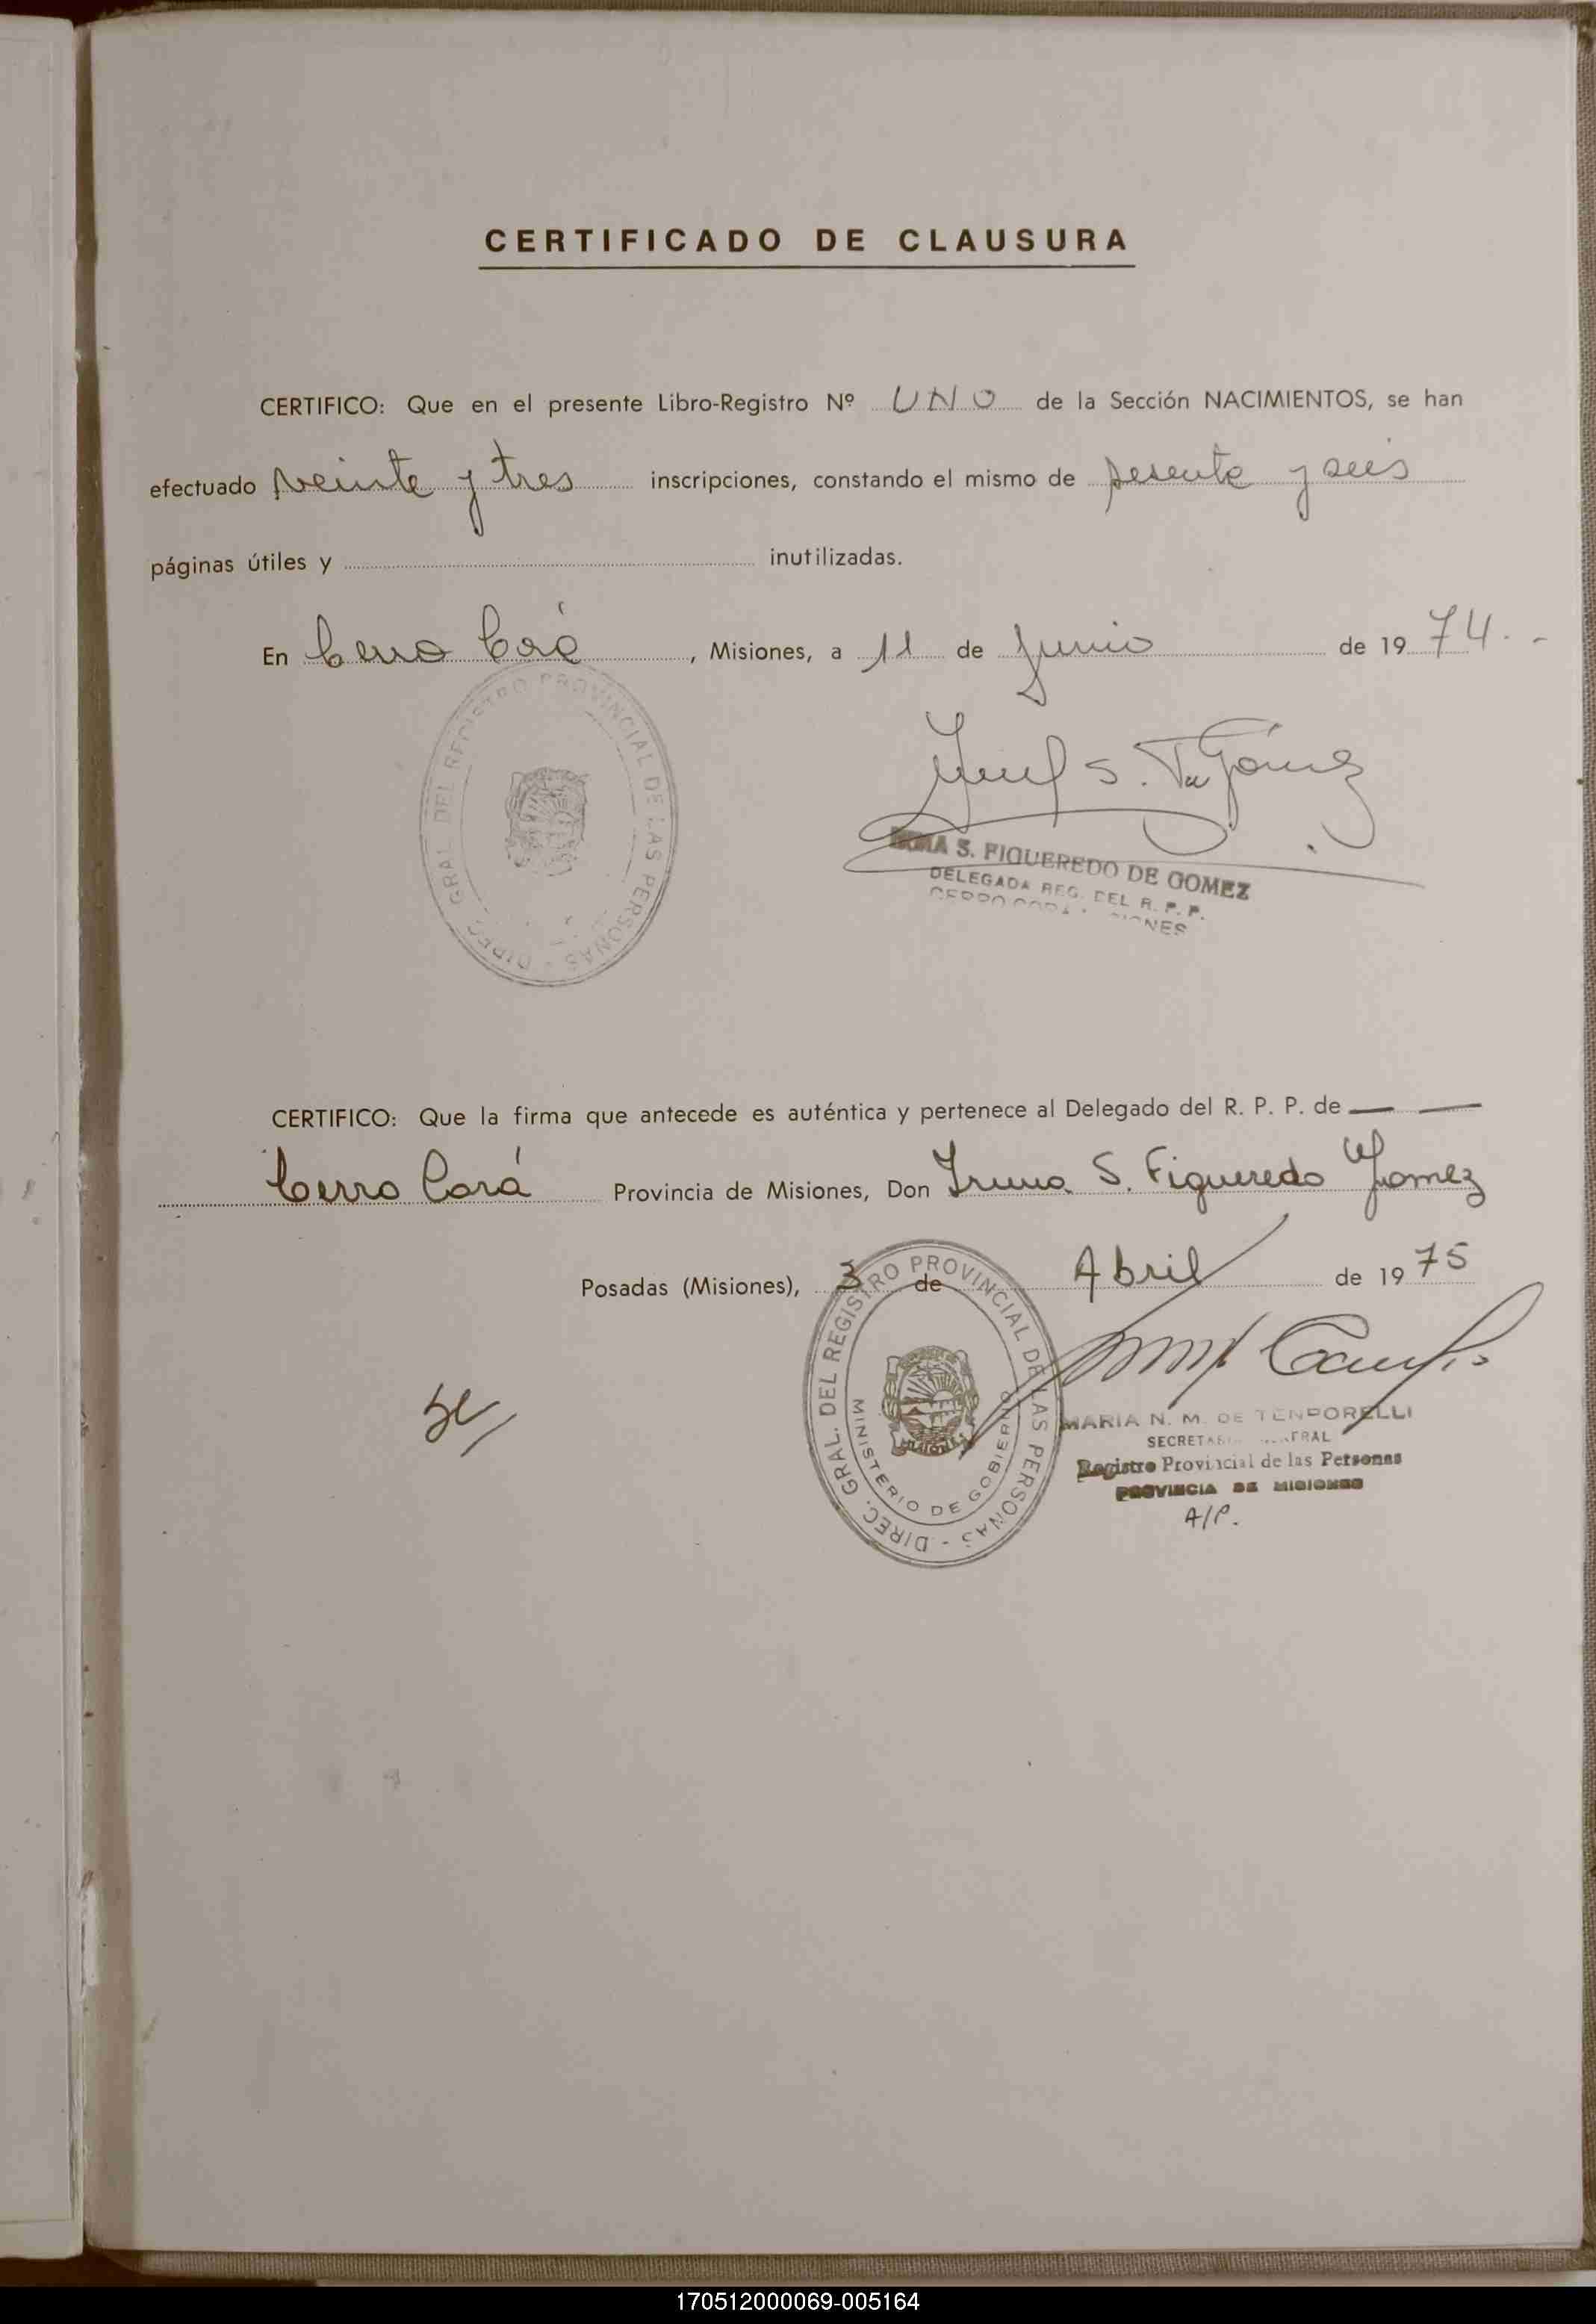 CERTIFICADO DE CLAUSURA
CERTIFICO: Que en el presente Libro-Registro Nº UNO de la Sección NACIMIENTOS, se han
efectuado veinte y tres inscripciones, constando el mismo de sesenta y seis
páginas útiles y inutilizadas.
En Cerro Corá, Misiones, a 11 de Junio de 1974.-
DIREC. GRAL. DEL REGISTRO PROVINCIAL DE LAS PERSONAS -
S. FIGUEREDO DE GOMEZ
DELEGADA REG. DEL R. P. P.
CERRO CORA
CERTIFICO: Que la firma que antecede es auténtica y pertenece al Delegado del R. P. P. de
Cerro Corá Provincia de Misiones, Don Irma S. Figueredo Gomez
Posadas (Misiones), 3 de Abril de 1975
DIREC. GRAL. DEL REGISTRO PROVINCIAL DE LAS PERSONAS -
MINISTERIO DE GOBIERNO
MISIONES
MARIA N. M. DE TEMPORELLI
SECRETARIA GENERAL
Registro Provincial de las Personas
PROVINCIA DE MISIONES
A/P.
170512000069-005164